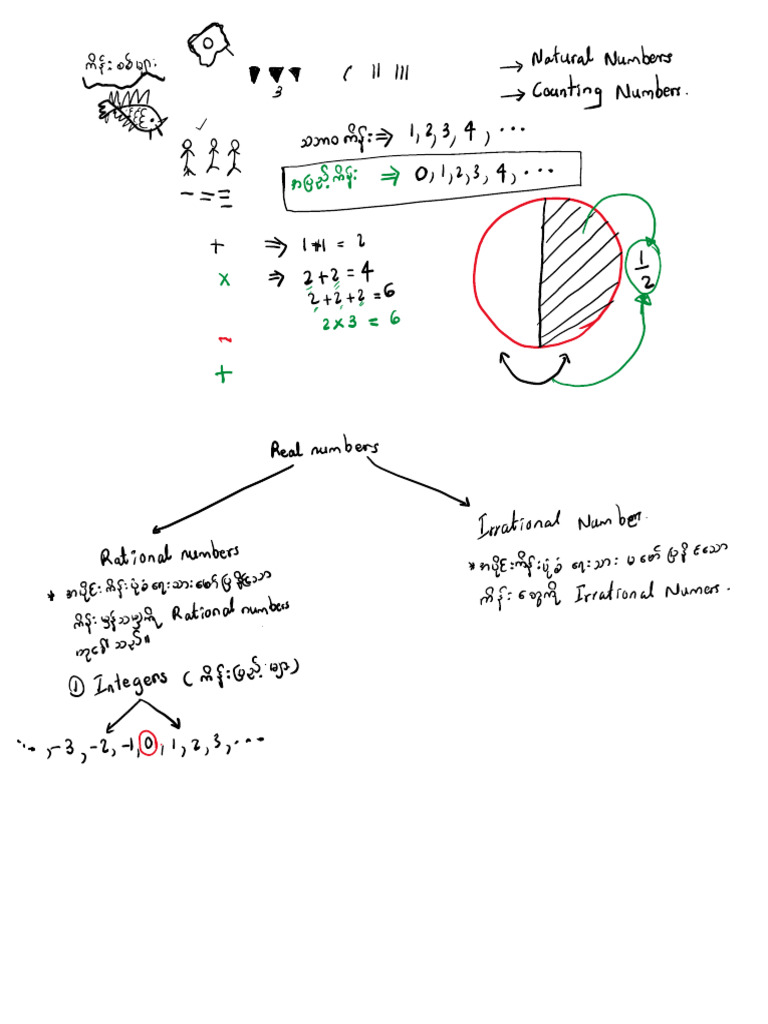 ကိန်းစစ်များ
3
→ Natural Numbers
→ Counting Numbers.
သဘာဝကိန်း ⇒ 1, 2, 3, 4, ...
အပြည့်ကိန်း ⇒ 0, 1, 2, 3, 4, ...
+ ⇒ 1+1 = 2
× ⇒ 2+2 = 4
2+2+2 = 6
2×3 = 6
-
+
1/2
Real numbers
Rational numbers
* အပိုင်းကိန်းပုံစံ ရေးသားဖော်ပြနိုင်သော
ကိန်းမှန်သမျှကို Rational numbers
ဟုခေါ်သည်။
① Integers (ကိန်းပြည့်များ)
..., -3, -2, -1, 0, 1, 2, 3, ...
Irrational Number.
* အပိုင်းကိန်းပုံစံ ရေးသား မဖော်ပြနိုင်သော
ကိန်းတွေကို Irrational Numers.